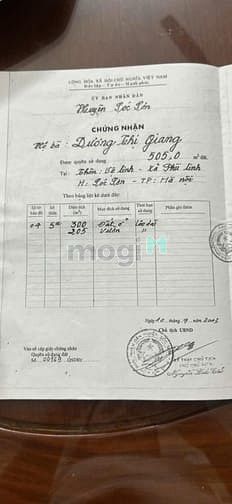 CỘNG HÒA XÃ HỘI CHỦ NGHĨA VIỆT NAM
Độc lập - Tự do - Hạnh phúc
ỦY BAN NHÂN DÂN
Huyện Sóc Sơn
CHỨNG NHẬN
Bà : Dương Thị Giang
Được quyền sử dụng 505,0 m² đất
Tại : Thôn : Vệ linh - Xã Phù linh
H : Sóc Sơn - TP : Hà nội
Theo bảng liệt kê dưới đây:
Số tờ bản đồ Số thửa Diện tích (m²) Mục đích sử dụng Thời hạn sử dụng Phần ghi thêm
04 300 Đất ở Lâu dài
205 Vườn "
mogi
Ngày 10 tháng 9 năm 2003
Chủ tịch UBND
Vào sổ cấp giấy chứng nhận
Quyền sử dụng đất